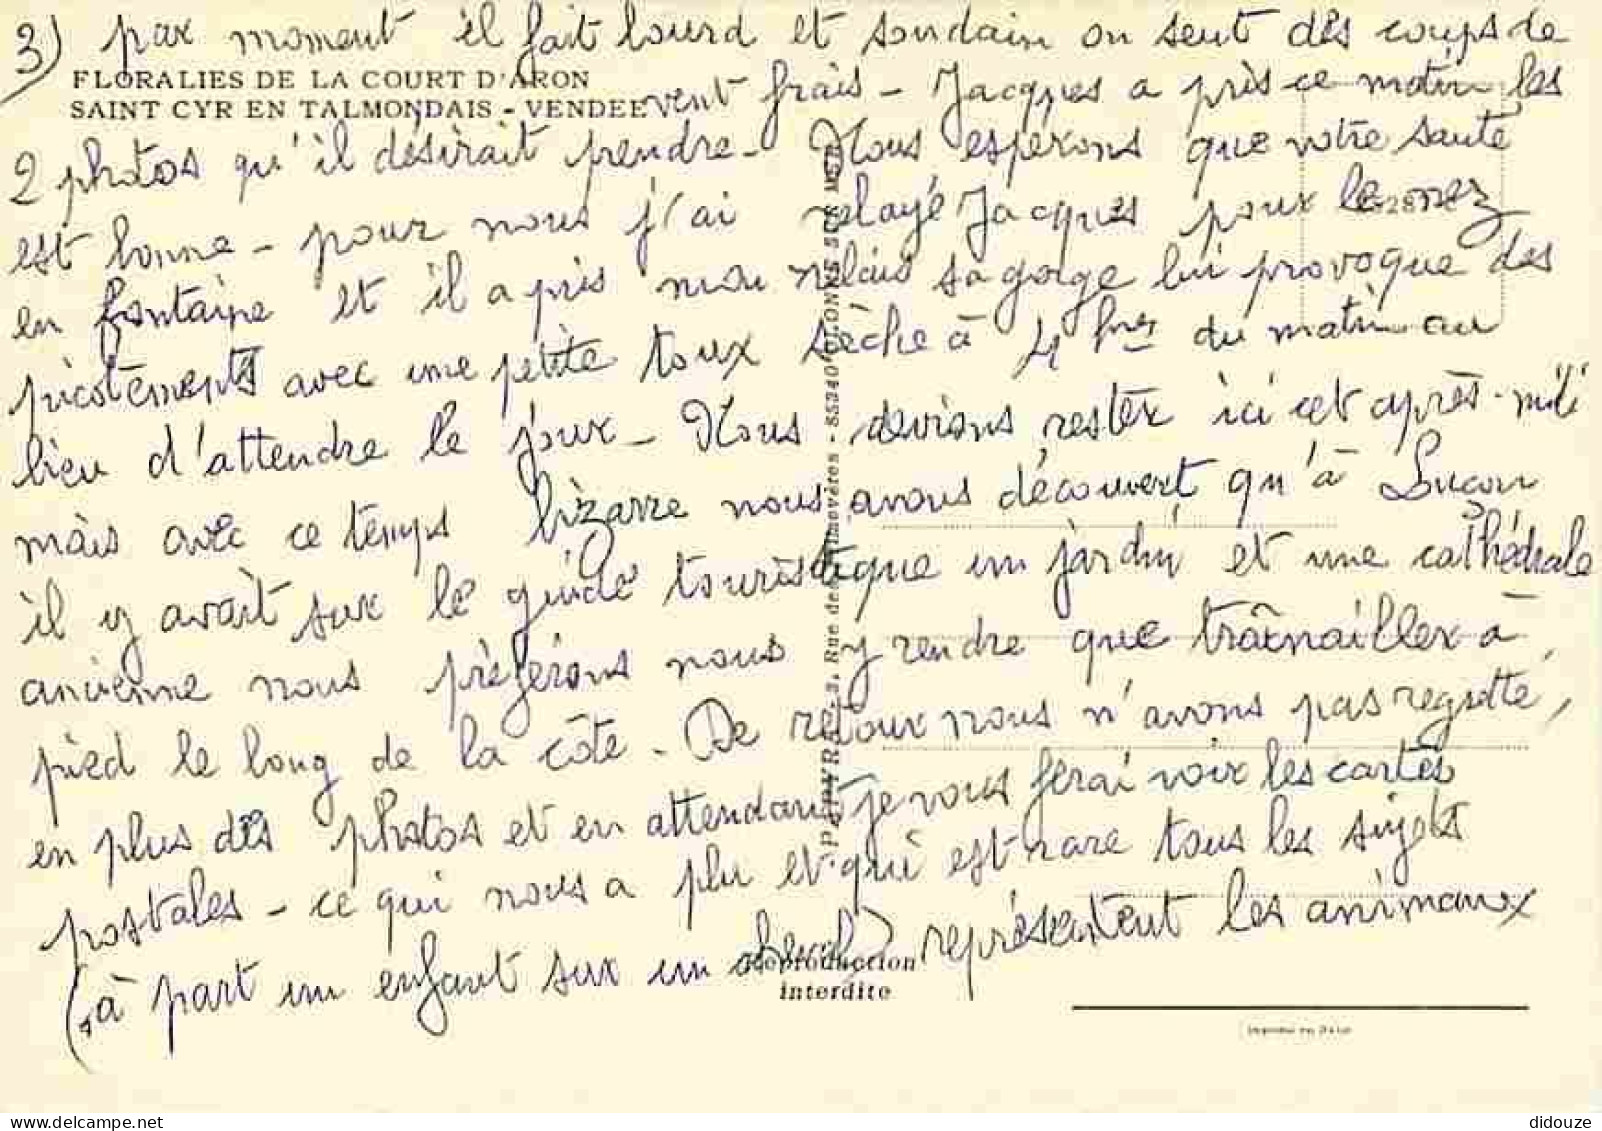 3) par moment il fait lourd et soudain on sent dès coups de
FLORALIES DE LA COURT D'ARON
SAINT CYR EN TALMONDAIS - VENDEE
vent frais - Jacques a pris ce matin les
2 photos qu'il désirait prendre - Nous espérons que votre santé
est bonne - pour nous j'ai relayé Jacques pour le nez
en fontaine et il a pris mon relais sa gorge lui provoque des
picotements avec une petite toux sèche à 4 hres du matin au
lieu d'attendre le jour - Nous devions rester ici cet après-midi
mais avec ce temps bizarre nous avons découvert qu'à Luçon
il y avait sur le guide touristique un jardin et une cathédrale
ancienne nous préférons nous y rendre que traînailler à
pied le long de la côte - De retour nous n'avons pas regretté,
en plus dès photos et en attendant je vous ferai voir les cartes
postales - ce qui nous a plu et qui est rare tous les sujets
(à part un enfant sur un cheval) représentent les animaux
PAPYR - 3, Rue des - 85340 OLONNE SUR MER
Reproduction
interdite
didouze